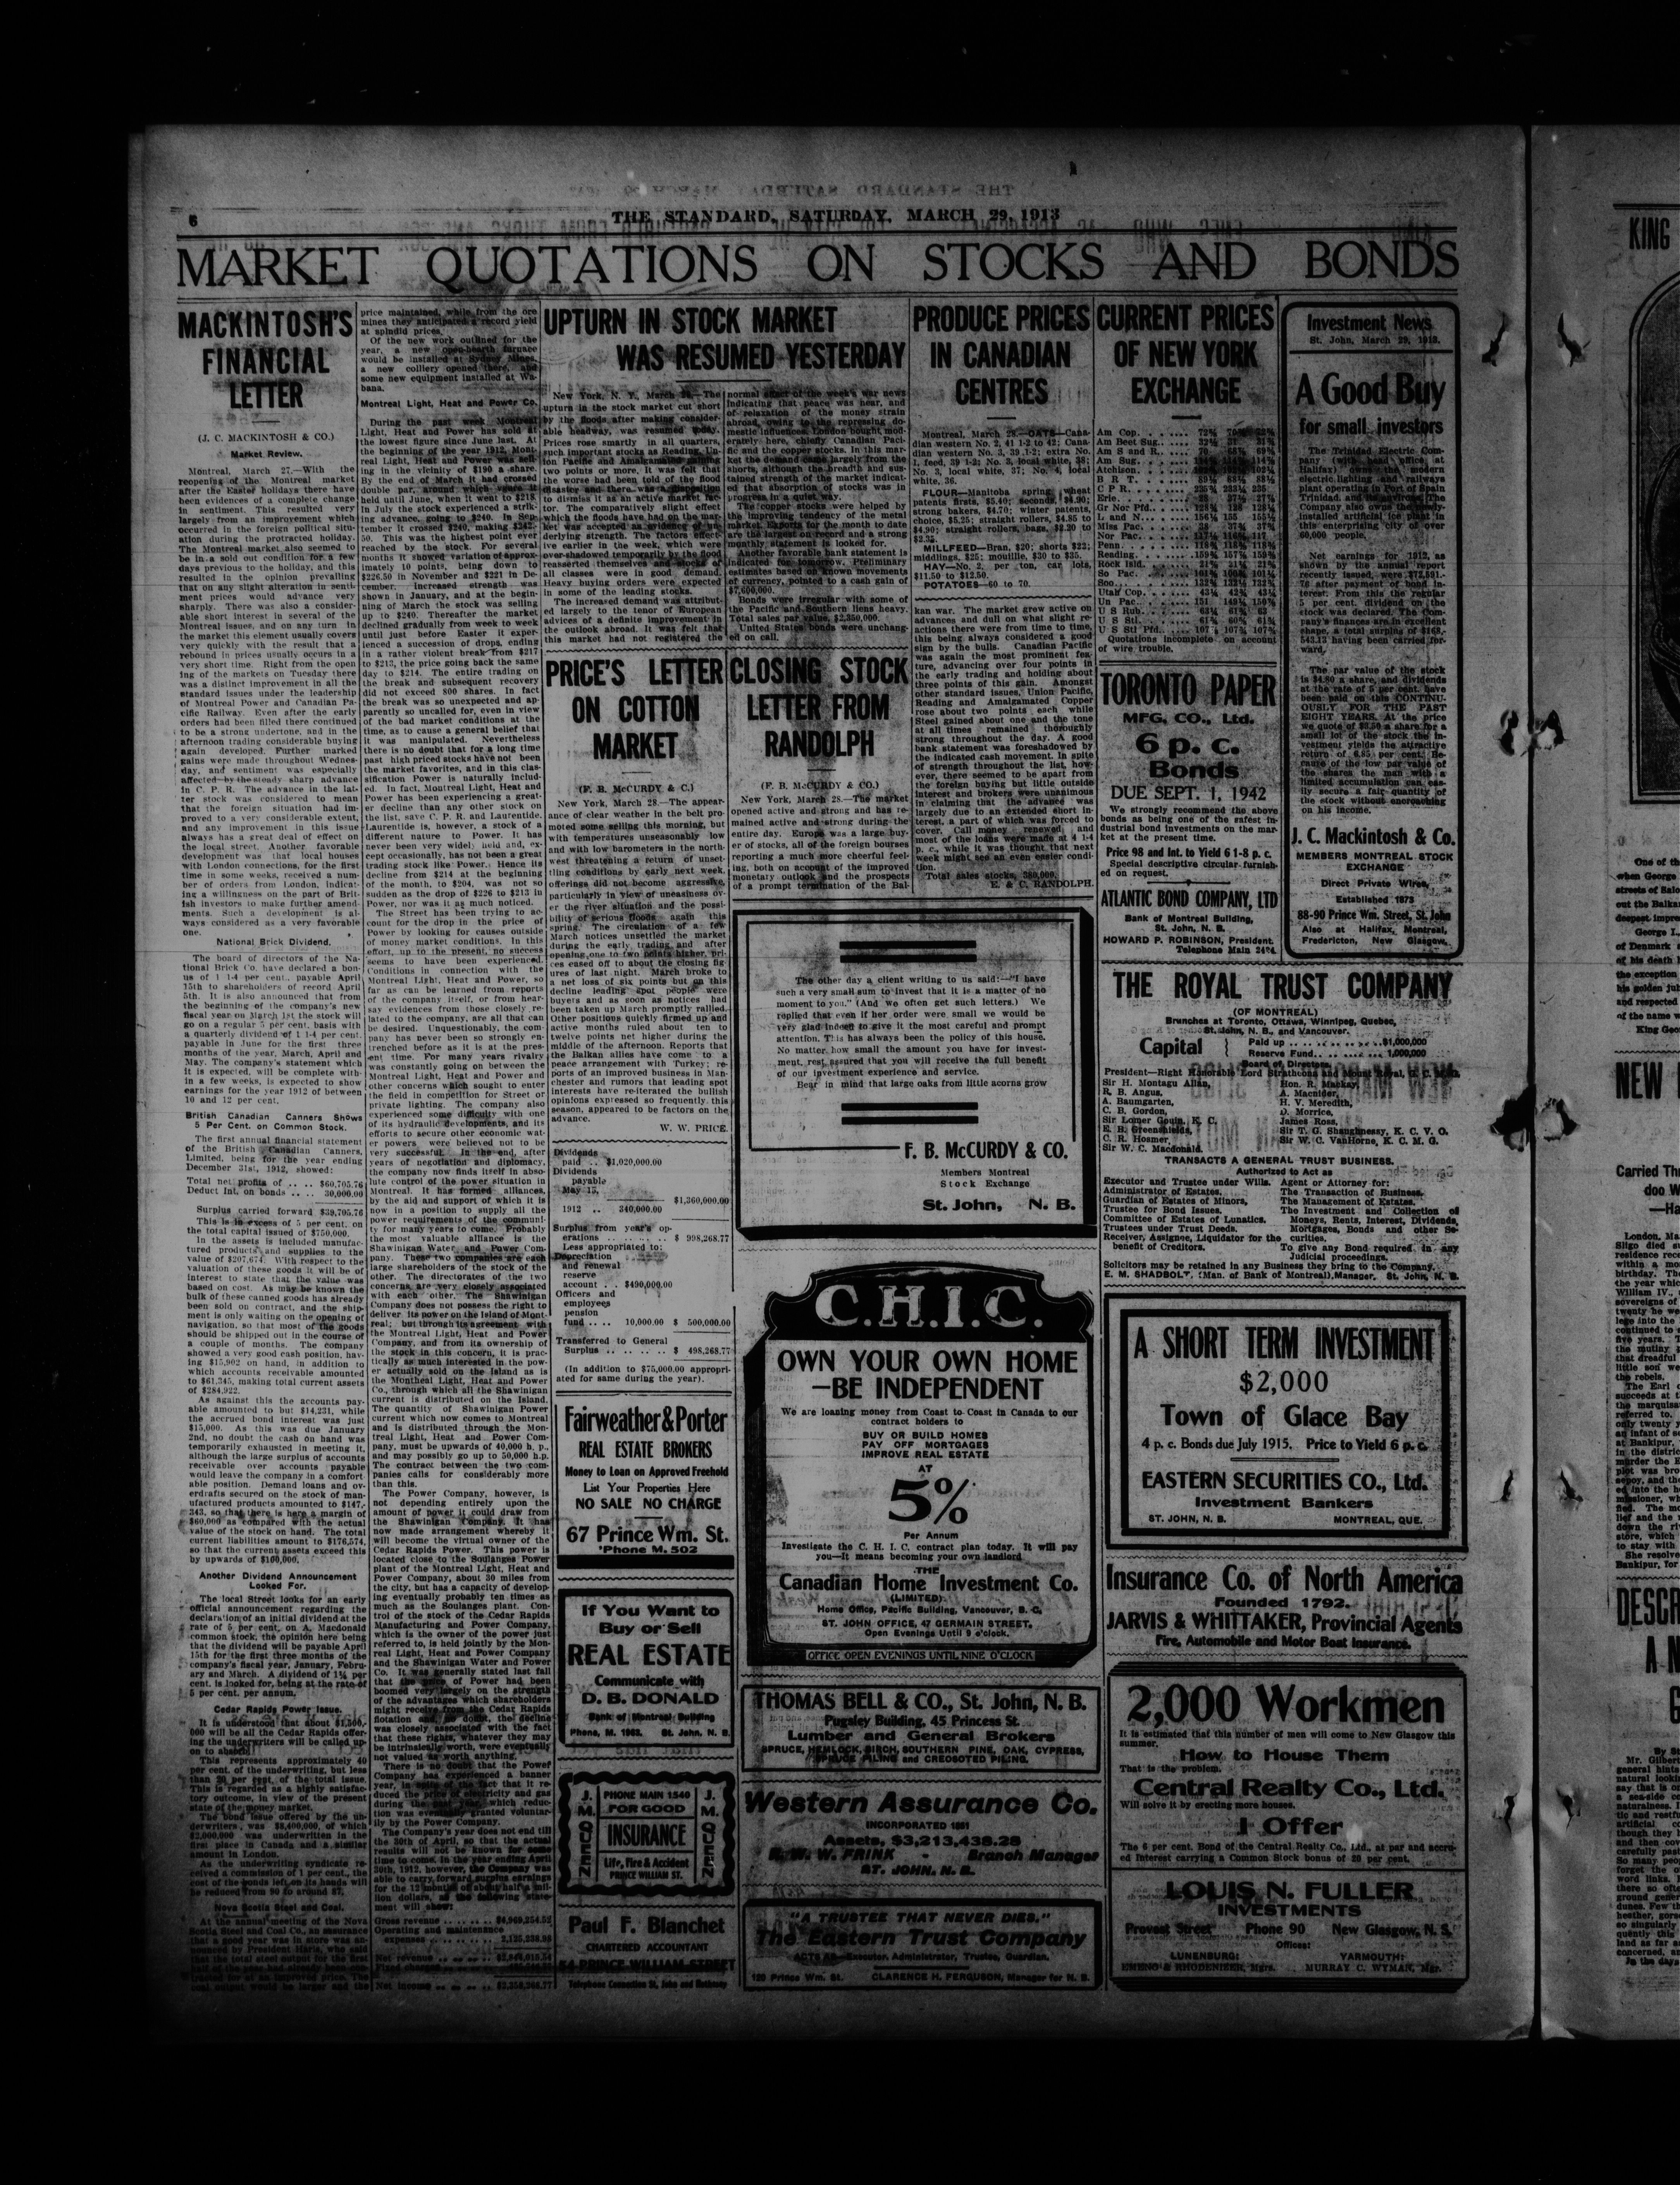 6
THE STANDARD, SATURDAY, MARCH 29, 1913
MARKET QUOTATIONS ON STOCKS AND BONDS
MACKINTOSH'S
FINANCIAL
LETTER
(J. C. MACKINTOSH & CO.)
Market Review.
Montreal, March 27.—With the
reopening of the Montreal market
after the Easter holidays there have
been evidences of a complete change
in sentiment. This resulted very
largely from an improvement which
occurred in the foreign political situ-
ation during the protracted holiday.
The Montreal market also seemed to
be in a sold out condition for a few
days previous to the holiday, and this
resulted in the opinion prevailing
that on any slight alteration in senti-
ment prices would advance very
sharply. There was also a consider-
able short interest in several of the
Montreal issues, and on any turn in
the market this element usually covers
very quickly with the result that a
rebound in prices usually occurs in a
very short time. Right from the open
ing of the markets on Tuesday there
was a distinct improvement in all the
standard issues under the leadership
of Montreal Power and Canadian Pa-
cific Railway. Even after the early
orders had been filled there continued
to be a strong undertone, and in the
afternoon trading considerable buying
again developed. Further marked
gains were made throughout Wednes-
day, and sentiment was especially
affected by the steady sharp advance
in C. P. R. The advance in the lat-
ter stock was considered to mean
that the foreign situation had im-
proved to a very considerable extent,
and any improvement in this issue
always has a great deal of effect on
the local street. Another favorable
development was that local houses
with London connections, for the first
time in some weeks, received a num-
ber of orders from London, indicat-
ing a willingness on the part of Brit-
ish investors to make further amend-
ments. Such a development is al-
ways considered as a very favorable
one.
National Brick Dividend.
The board of directors of the Na-
tional Brick Co. have declared a bon-
us of 1 1-4 per cent., payable April
15th to shareholders of record April
5th. It is also announced that from
the beginning of the company's new
fiscal year on March 1st the stock will
go on a regular 5 per cent. basis with
a quarterly dividend of 1 1-4 per cent.
payable in June for the first three
months of the year, March, April and
May. The company's statement which
it is expected, will be complete with-
in a few weeks, is expected to show
earnings for the year 1912 of between
10 and 12 per cent.
British Canadian Canners Shows
5 Per Cent. on Common Stock.
The first annual financial statement
of the British Canadian Canners,
Limited, being for the year ending
December 31st, 1912, showed:
Total net profits of .. .. $60,705.76
Deduct Int. on bonds .. .. 30,000.00
Surplus carried forward $39,705.76
This is in excess of 5 per cent. on
the total capital issued of $750,000.
In the assets is included manufac-
tured products and supplies to the
value of $207,674. With respect to the
valuation of these goods it will be of
interest to state that the value was
based on cost. As may be known the
bulk of these canned goods has already
been sold on contract, and the ship-
ment is only waiting on the opening of
navigation, so that most of the goods
should be shipped out in the course of
a couple of months. The company
showed a very good cash position, hav-
ing $15,902 on hand, in addition to
which accounts receivable amounted
to $61,345, making total current assets
of $284,922.
As against this the accounts pay-
able amounted to but $14,231, while
the accrued bond interest was just
$15,000. As this was due January
2nd, no doubt the cash on hand was
temporarily exhausted in meeting it,
although the large surplus of accounts
receivable over accounts payable
would leave the company in a comfort
able position. Demand loans and ov-
erdrafts secured on the stock of man-
ufactured products amounted to $147,-
343, so that there is here a margin of
$60,000 as compared with the actual
value of the stock on hand. The total
current liabilities amount to $176,574,
so that the current assets exceed this
by upwards of $100,000.
Another Dividend Announcement
Looked For.
The local Street looks for an early
official announcement regarding the
declaration of an initial dividend at the
rate of 5 per cent. on A. Macdonald
common stock, the opinion here being
that the dividend will be payable April
15th for the first three months of the
company's fiscal year, January, Febru-
ary and March. A dividend of 1¼ per
cent. is looked for, being at the rate of
5 per cent. per annum.
Cedar Rapids Power Issue.
It is understood that about $1,500,-
000 will be all the Cedar Rapids offer-
ing the underwriters will be called up-
on to absorb.
This represents approximately 40
per cent. of the underwriting, but less
than 20 per cent. of the total issue.
This is regarded as a highly satisfac-
tory outcome, in view of the present
state of the money market.
The bond issue offered by the un-
derwriters, was $8,400,000, of which
$2,000,000 was underwritten in the
first place in Canada and a similar
amount in London.
As the underwriting syndicate re-
ceived a commission of 1 per cent., the
cost of the bonds left on its hands will
be reduced from 90 to around 87.
Nova Scotia Steel and Coal.
At the annual meeting of the Nova
Scotia Steel and Coal Co., an assurance
that a good year was in store was an-
nounced by President Harris, who said
price maintained, while from the ore
mines they anticipated a record yield
at splendid prices.
Of the new work outlined for the
year, a new open-hearth furnace
would be installed at Sydney Mines,
a new colliery opened there, and
some new equipment installed at Wa-
bana.
Montreal Light, Heat and Power Co.
During the past week Montreal
Light, Heat and Power has sold at
the lowest figure since June last. At
the beginning of the year 1912, Mont-
real Light, Heat and Power was sell-
ing in the vicinity of $190 a share.
By the end of March it had crossed
double par, around which years it
held until June, when it went to $218.
In July the stock experienced a strik-
ing advance, going to $240. In Sep-
tember it crossed $240, making $242-
50. This was the highest point ever
reached by the stock. For several
months it showed variation of approx-
imately 10 points, being down to
$226.50 in November and $221 in De-
cember. Increased strength was
shown in January, and at the begin-
ning of March the stock was selling
up to $240. Thereafter the market
declined gradually from week to week
until just before Easter it exper-
ienced a succession of drops, ending
in a rather violent break from $217
to $213, the price going back the same
day to $214. The entire trading on
the break and subsequent recovery
did not exceed 800 shares. In fact
the break was so unexpected and ap-
parently so uncalled for, even in view
of the bad market conditions at the
time, as to cause a general belief that
it was manipulated. Nevertheless
there is no doubt that for a long time
past high priced stocks have not been
the market favorites, and in this clas-
sification Power is naturally includ-
ed. In fact, Montreal Light, Heat and
Power has been experiencing a great-
er decline than any other stock on
the list, save C. P. R. and Laurentide.
Laurentide is, however, a stock of a
different nature to Power. It has
never been very widely held and, ex-
cept occasionally, has not been a great
trading stock like Power. Hence its
decline from $214 at the beginning
of the month, to $204, was not so
sudden as the drop of $226 to $213 in
Power, nor was it as much noticed.
The Street has been trying to ac-
count for the drop in the price of
Power by looking for causes outside
of money market conditions. In this
effort, up to the present, no success
seems to have been experienced.
Conditions in connection with the
Montreal Light, Heat and Power, so
far as can be learned from reports
of the company itself, or from hear-
say evidences from those closely re-
lated to the company, are all that can
be desired. Unquestionably, the com-
pany has never been so strongly en-
trenched before as it is at the pres-
ent time. For many years rivalry
was constantly going on between the
Montreal Light, Heat and Power and
other concerns which sought to enter
the field in competition for Street or
private lighting. The company also
experienced some difficulty with one
of its hydraulic developments, and its
efforts to secure other economic wat-
er powers were believed not to be
very successful. In the end, after
years of negotiation and diplomacy,
the company now finds itself in abso-
lute control of the power situation in
Montreal. It has formed alliances,
by the aid and support of which it is
now in a position to supply all the
power requirements of the communi-
ty for many years to come. Probably
the most valuable alliance is the
Shawinigan Water and Power Com-
pany. These two companies are each
large shareholders of the stock of the
other. The directorates of the two
concerns are very closely associated
with each other. The Shawinigan
Company does not possess the right to
deliver its power on the Island of Mont-
real; but through its agreement with
the Montreal Light, Heat and Power
Company, and from its ownership of
the stock in this concern, it is prac-
tically as much interested in the pow-
er actually sold on the Island as is
the Montreal Light, Heat and Power
Co., through which all the Shawinigan
current is distributed on the Island.
The quantity of Shawinigan Power
current which now comes to Montreal
and is distributed through the Mon-
treal Light, Heat and Power Com-
pany, must be upwards of 40,000 h. p.,
and may possibly go up to 50,000 h.p.
The contract between the two com-
panies calls for considerably more
than this.
The Power Company, however, is
not depending entirely upon the
amount of power it could draw from
the Shawinigan Company. It has
now made arrangement whereby it
will become the virtual owner of the
Cedar Rapids Power. This power is
located close to the Soulanges Power
plant of the Montreal Light, Heat and
Power Company, about 30 miles from
the city, but has a capacity of develop-
ing eventually probably ten times as
much as the Soulanges plant. Con-
trol of the stock of the Cedar Rapids
Manufacturing and Power Company,
which is the owner of the power just
referred to, is held jointly by the Mon-
real Light, Heat and Power Company
and the Shawinigan Water and Power
Co. It was generally stated last fall
that the price of Power had been
boomed very largely on the strength
of the advantages which shareholders
might receive from the Cedar Rapids
flotation and, no doubt, the decline
was closely associated with the fact
that these rights, whatever they may
be intrinsically worth, were eventually
not valued as worth anything.
There is no doubt that the Power
Company has experienced a banner
year, in spite of the fact that it re-
duced the price of electricity and gas
during the past year, which reduc-
tion was eventually granted voluntar-
ily by the Power Company.
The Company's year does not end till
the 30th of April, so that the actual
results will not be known for some
time to come. In the year ending April
30th, 1912, however, the Company was
able to carry forward surplus earnings
for the 12 months of about half a mil-
lion dollars, as the following state-
ment will show:
Gross revenue .. .. .. .. $4,969,254.52
Operating and maintenance
expenses .. .. .. ..
Net revenue
Net income .. .. .. .. $2,358,268.77
UPTURN IN STOCK MARKET
WAS RESUMED YESTERDAY
New York, N. Y., March 28.—The
upturn in the stock market cut short
by the floods after making consider-
able headway, was resumed today.
Prices rose smartly in all quarters,
such important stocks as Reading, Un-
ion Pacific and Amalgamated gaining
two points or more. It was felt that
the worse had been told of the flood
disaster and there was a disposition
to dismiss it as an active market fac-
tor. The comparatively slight effect
which the floods have had on the mar-
ket was accepted as evidence of un-
derlying strength. The factors effect-
ive earlier in the week, which were
over-shadowed temporarily by the flood
reasserted themselves and stocks of
all classes were in good demand.
Heavy buying orders were expected
in some of the leading stocks.
The increased demand was attribut-
ed largely to the tenor of European
advices of a definite improvement in
the outlook abroad. It was felt that
this market had not registered the
normal effect of the week's war news
indicating that peace was near, and
of relaxation of the money strain
abroad, owing to the repressing do-
mestic influences. London bought mod-
erately here, chiefly Canadian Paci-
fic and the copper stocks. In this mar-
ket the demand came largely from the
shorts, although the breadth and sus-
tained strength of the market indicat-
ed that absorption of stocks was in
progress in a quiet way.
The copper stocks were helped by
the improving tendency of the metal
market. Exports for the month to date
are the largest on record and a strong
monthly statement is looked for.
Another favorable bank statement is
indicated for tomorrow. Preliminary
estimates based on known movements
of currency, pointed to a cash gain of
$7,600,000.
Bonds were irregular with some of
the Pacific and Southern liens heavy.
Total sales par value, $2,350,000.
United States bonds were unchang-
ed on call.
PRICE'S LETTER
ON COTTON
MARKET
(F. B. McCURDY & C.)
New York, March 28.—The appear-
ance of clear weather in the belt pro-
moted some selling this morning, but
with temperatures unseasonably low
and with low barometers in the north-
west threatening a return of unset-
tling conditions by early next week,
offerings did not become aggressive,
particularly in view of uneasiness ov-
er the river situation and the possi-
bility of serious floods again this
spring. The circulation of a few
March notices unsettled the market
during the early trading and after
opening one to two points higher, pri-
ces eased off to about the closing fig-
ures of last night. March broke to
a net loss of six points but on this
decline leading spot people were
buyers and as soon as notices had
been taken up March promptly rallied.
Other positions quickly firmed up and
active months ruled about ten to
twelve points net higher during the
middle of the afternoon. Reports that
the Balkan allies have come to a
peace arrangement with Turkey; re-
ports of an improved business in Man-
chester and rumors that leading spot
interests have re-iterated the bullish
opinions expressed so frequently, this
season, appeared to be factors on the
advance.
W. W. PRICE.
Dividends
paid .. $1,020,000.00
Dividends
payable
May 15,
1912 .. 340,000.00
$1,360,000.00
Surplus from year's op-
erations .. .. .. .. $ 998,268.77
Less appropriated to:
Depreciation
and renewal
reserve
account . . $490,000.00
Officers and
employees
pension
fund .. .. 10,000.00 $ 500,000.00
Transferred to General
Surplus .. .. .. .. $ 498,268.77
(In addition to $75,000.00 appropri-
ated for same during the year).
Fairweather & Porter
REAL ESTATE BROKERS
Money to Loan on Approved Freehold
List Your Properties Here
NO SALE NO CHARGE
67 Prince Wm. St.
'Phone M. 502
If You Want to
Buy or Sell
REAL ESTATE
Communicate with
D. B. DONALD
Bank of Montreal Building
Phone, M. 1963. St. John, N. B.
J. M. QUEEN
PHONE MAIN 1540
FOR GOOD
INSURANCE
Life, Fire & Accident
PRINCE WILLIAM ST.
J. M. QUEEN
Paul F. Blanchet
CHARTERED ACCOUNTANT
54 PRINCE WILLIAM STREET
Telephone Connection St. John and Rothesay
CLOSING STOCK
LETTER FROM
RANDOLPH
(F. B. McCURDY & CO.)
New York, March 28.—The market
opened active and strong and has re-
mained active and strong during the
entire day. Europe was a large buy-
er of stocks, all of the foreign bourses
reporting a much more cheerful feel-
ing, both on account of the improved
monetary outlook and the prospects
of a prompt termination of the Bal-
kan war. The market grew active on
advances and dull on what slight re-
actions there were from time to time,
this being always considered a good
sign by the bulls. Canadian Pacific
was again the most prominent fea-
ture, advancing over four points in
the early trading and holding about
three points of this gain. Amongst
other standard issues, Union Pacific,
Reading and Amalgamated Copper
rose about two points each while
Steel gained about one and the tone
at all times remained thoroughly
strong throughout the day. A good
bank statement was foreshadowed by
the indicated cash movement. In spite
of strength throughout the list, how-
ever, there seemed to be apart from
the foreign buying but little outside
interest and brokers were unanimous
in claiming that the advance was
largely due to an extended short in-
terest, a part of which was forced to
cover. Call money renewed and
most of the loans were made at 4 1-4
p. c., while it was thought that next
week might see an even easier condi-
tion.
Total sales stocks, 380,000.
E. & C. RANDOLPH.
The other day a client writing to us said:—"I have
such a very small sum to invest that it is a matter of no
moment to you." (And we often get such letters.) We
replied that even if her order were small we would be
very glad indeed to give it the most careful and prompt
attention. This has always been the policy of this house.
No matter how small the amount you have for invest-
ment, rest assured that you will receive the full benefit
of our investment experience and service.
Bear in mind that large oaks from little acorns grow
F. B. McCURDY & CO.
Members Montreal
Stock Exchange
St. John, N. B.
C.H.I.C.
OWN YOUR OWN HOME
—BE INDEPENDENT
We are loaning money from Coast to Coast in Canada to our
contract holders to
BUY OR BUILD HOMES
PAY OFF MORTGAGES
IMPROVE REAL ESTATE
AT
5%
Per Annum
Investigate the C. H. I. C. contract plan today. It will pay
you—It means becoming your own landlord
THE
Canadian Home Investment Co.
(LIMITED)
Home Office, Pacific Building, Vancouver, B. C.
ST. JOHN OFFICE, 47 GERMAIN STREET.
Open Evenings Until 9 o'clock.
OFFICE OPEN EVENINGS UNTIL NINE O'CLOCK
THOMAS BELL & CO., St. John, N. B.
Pugsley Building, 45 Princess St.
Lumber and General Brokers
SPRUCE, HEMLOCK, BIRCH, SOUTHERN PINE, OAK, CYPRESS,
SPRUCE PILING and CREOSOTED PILING.
Western Assurance Co.
INCORPORATED 1851
Assets, $3,213,438.28
R. W. W. FRINK - Branch Manager
ST. JOHN, N. B.
"A TRUSTEE THAT NEVER DIES."
The Eastern Trust Company
ACTS AS—Executor, Administrator, Trustee, Guardian.
120 Prince Wm. St. CLARENCE H. FERGUSON, Manager for N. B.
PRODUCE PRICES
IN CANADIAN
CENTRES
Montreal, March 28.—OATS—Cana-
dian western No. 2, 41 1-2 to 42; Cana-
dian western No. 3, 39 1-2; extra No.
1, feed, 39 1-2; No. 3, local white, 38;
No. 3, local white, 37; No. 4, local
white, 36.
FLOUR—Manitoba spring wheat
patents firsts, $5.40; seconds, $4.90;
strong bakers, $4.70; winter patents,
choice, $5.25; straight rollers, $4.85 to
$4.90; straight rollers, bags, $2.20 to
$2.35.
MILLFEED—Bran, $20; shorts $22;
middlings, $25; mouille, $30 to $35.
HAY—No. 2, per ton, car lots,
$11.50 to $12.50.
POTATOES—60 to 70.
CURRENT PRICES
OF NEW YORK
EXCHANGE
Am Cop.
Am Beet Sug.
Am S and R.
Am Sug.
Atchison.
B R T. 89¼ 88¾ 88¼
C P R. 235⅝ 233¼ 235
Erie.
Gr Nor Pfd.
L and N.
Miss Pac.
Nor Pac.
Penn.
Reading.
Rock Isld.
So Pac.
Soo.
Utah Cop. 43¼ 42¾ 43¼
Un Pac.
U S Rub.
U S Stl. 61⅝ 60⅝ 61⅝
U S Stl Pfd.
Quotations incomplete on account
of wire trouble.
TORONTO PAPER
MFG. CO., Ltd.
6 p. c.
Bonds
DUE SEPT. 1, 1942
We strongly recommend the above
bonds as being one of the safest in-
dustrial bond investments on the mar-
ket at the present time.
Price 98 and Int. to Yield 6 1-8 p. c.
Special descriptive circular furnish-
ed on request.
ATLANTIC BOND COMPANY, LTD
Bank of Montreal Building,
St. John, N. B.
HOWARD P. ROBINSON, President.
Telephone Main 2424
Investment News
St. John, March 29, 1913.
A Good Buy
for small investors
The Trinidad Electric Com-
pany (with head office at
Halifax) owns the modern
electric lighting and railways
plant operating in Port of Spain
Trinidad, and its environs. The
Company also owns the newly-
installed artificial ice plant in
this enterprising city of over
60,000 people.
Net earnings for 1912, as
shown by the annual report
recently issued, were $72,591.-
76 after payment of bond in-
terest. From this the regular
5 per cent. dividend on the
stock was declared. The Com-
pany's finances are in excellent
shape, a total surplus of $168,-
543.13 having been carried for-
ward.
The par value of the stock
is $4.80 a share, and dividends
at the rate of 5 per cent. have
been paid on this CONTINU-
OUSLY FOR THE PAST
EIGHT YEARS. At the price
we quote of $3.50 a share for a
small lot of the stock the in-
vestment yields the attractive
return of 6.85 per cent. Be-
cause of the low par value of
the shares the man with a
limited accumulation can eas-
ily secure a fair quantity of
the stock without encroaching
on his income.
J. C. Mackintosh & Co.
MEMBERS MONTREAL STOCK
EXCHANGE
Direct Private Wires,
Established 1873
88-90 Prince Wm. Street, St. John
Also at Halifax, Montreal,
Fredericton, New Glasgow,
THE ROYAL TRUST COMPANY
(OF MONTREAL)
Branches at Toronto, Ottawa, Winnipeg, Quebec,
St. John, N. B., and Vancouver.
Capital { Paid up .. .. .. .. .. $1,000,000
Reserve Fund.. .. .. .. 1,000,000
Board of Directors.
President—Right Honorable Lord Strathcona and Mount Royal, G. C. M. G.
Sir H. Montagu Allan, Hon. R. Mackay,
R. B. Angus, A. Macnider,
A. Baumgarten, H. V. Meredith,
C. B. Gordon, D. Morrice,
Sir Lomer Gouin, K. C. James Ross,
E. B. Greenshields, Sir T. G. Shaughnessy, K. C. V. O.
C. R. Hosmer, Sir W. C. VanHorne, K. C. M. G.
Sir W. C. Macdonald.
TRANSACTS A GENERAL TRUST BUSINESS.
Authorized to Act as
Executor and Trustee under Wills. Agent or Attorney for:
Administrator of Estates. The Transaction of Business.
Guardian of Estates of Minors, The Management of Estates.
Trustee for Bond Issues. The Investment and Collection of
Committee of Estates of Lunatics. Moneys, Rents, Interest, Dividends,
Trustees under Trust Deeds. Mortgages, Bonds and other Se-
Receiver, Assignee, Liquidator for the curities.
benefit of Creditors. To give any Bond required in any
Judicial proceedings.
Solicitors may be retained in any Business they bring to the Company.
E. M. SHADBOLT, (Man. of Bank of Montreal), Manager, St. John, N. B.
A SHORT TERM INVESTMENT
$2,000
Town of Glace Bay
4 p. c. Bonds due July 1915. Price to Yield 6 p. c.
EASTERN SECURITIES CO., Ltd.
Investment Bankers
ST. JOHN, N. B. MONTREAL, QUE.
Insurance Co. of North America
Founded 1792.
JARVIS & WHITTAKER, Provincial Agents
Fire, Automobile and Motor Boat Insurance.
2,000 Workmen
It is estimated that this number of men will come to New Glasgow this
summer.
How to House Them
That is the problem.
Central Realty Co., Ltd.
Will solve it by erecting more houses.
I Offer
The 6 per cent. Bond of the Central Realty Co., Ltd., at par and accru-
ed Interest carrying a Common Stock bonus of 20 per cent.
LOUIS N. FULLER
INVESTMENTS
Provost Street Phone 90 New Glasgow, N. S.
Offices:
LUNENBURG: YARMOUTH:
MURRAY C. WYMAN, Mgr.
KING
One of th
when George
streets of Salo
out the Balka
deepest impre
George I.,
of Denmark
of his death
the exception
his golden jub
and respected
of the name w
King Geo
NEW
Carried Thr
doo W
—Ha
London, Ma
Sligo died su
residence rece
within a mo
birthday. The
the year which
William IV.,
sovereigns of
DESCR
A N